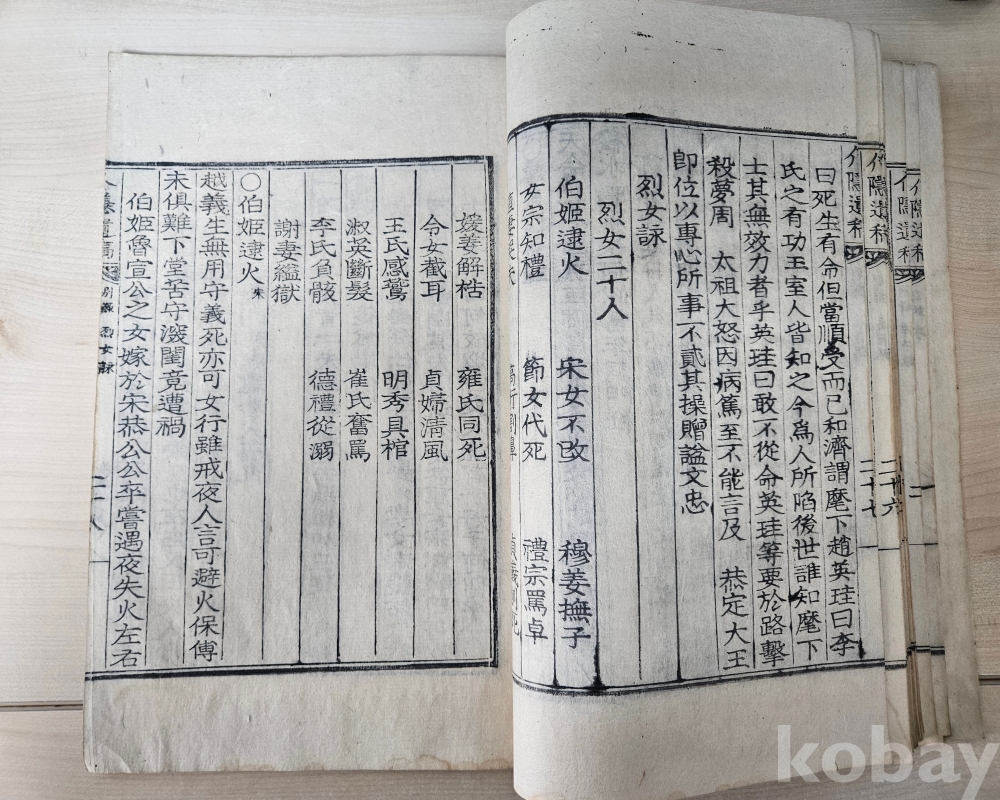 隱遺稿
隱遺稿
隱遺稿
二十七
曰死生有命但當順受而已和濟謂麾下趙英珪曰李
氏之有功王室人皆知之今為人所陷後世誰知麾下
士其無效力者乎英珪曰敢不從命英珪等要於路擊
殺夢周 太祖大怒因病篤至不能言及 恭定大王
即位以專心所事不貳其操贈諡文忠
烈女詠
烈女二十人
伯姬逮火 宋女不改 穆姜撫子
女宗知禮 節女代死 禮宗罵卓
媛姜解梏 雍氏同死
令女截耳 貞婦清風
王氏感鷰 明秀具棺
淑英斷髮 崔氏奮罵
李氏負骸 德禮從溺
謝妻縊獄
○伯姬逮火
越義生無用守義死亦可女行雖戒夜人言可避火保傅
未俱難下堂苦守深閨竟遭禍
伯姬魯宣公之女嫁於宋恭公公卒嘗遇夜失火左右
烈女詠 二十八
kobay